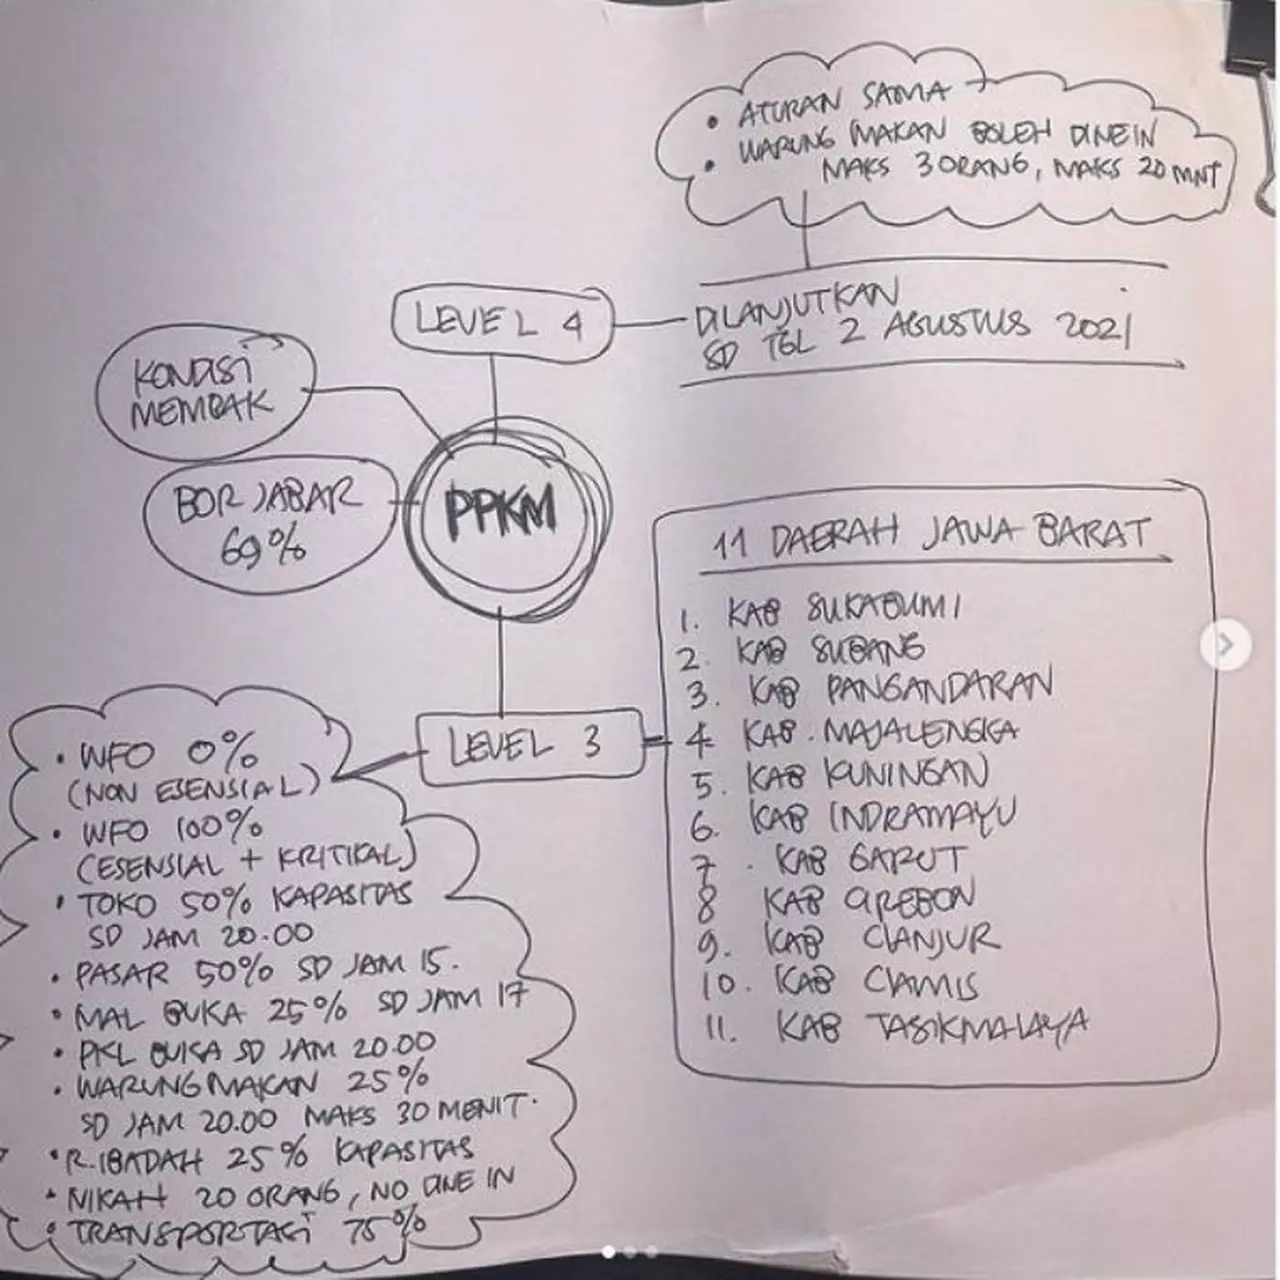 • ATURAN SAMA
• WARUNG MAKAN BOLEH DINEIN
MAKS 3 ORANG, MAKS 20 MNT
LEVEL 4
DILANJUTKAN
SD TGL 2 AGUSTUS 2021
KONDISI
MEMBAIK
BOR JABAR
69%
PPKM
LEVEL 3
11 DAERAH JAWA BARAT
1. KAB SUKABUMI
2. KAB SUBANG
3. KAB PANGANDARAN
4 KAB. MAJALENGKA
5. KAB KUNINGAN
6. KAB INDRAMAYU
7. KAB GARUT
8 KAB CIREBON
9. KAB CIANJUR
10. KAB CIAMIS
11. KAB TASIKMALAYA
• WFO 0%
(NON ESENSIAL)
• WFO 100%
(ESENSIAL + KRITIKAL)
• TOKO 50% KAPASITAS
SD JAM 20.00
• PASAR 50% SD JAM 15.
• MAL BUKA 25% SD JAM 17
• PKL BUKA SD JAM 20.00
• WARUNG MAKAN 25%
SD JAM 20.00 MAKS 30 MENIT.
• R.IBADAH 25% KAPASITAS
• NIKAH 20 ORANG, NO DINE IN
• TRANSPORTASI 75%